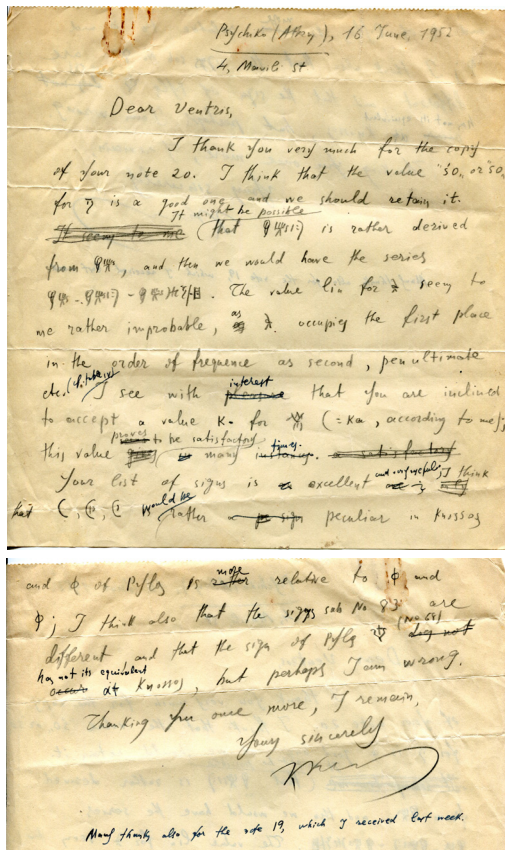 Psychiko (Athens), 16 June, 1952
4, St
Dear Ventris,
I thank you very much for the copy
of your note 20. I think that the value "50" or "50
for is a good one and we should retain it.
It might be possible
It seems to me (that is rather derived
from , and then we would have the series
. The value lin for seem to
me rather improbable, as occupies the first place
in the order of frequence as second, penultimate
etc. I see with pleasure interest that you are inclined
to accept a value K- for (= Ka, according to me);
this value proves to be satisfactory in many times. satisfactory
Your list of signs is excellent and very useful; I think
that would be rather peculiar in Knossos
and of Pylos is rather more relative to and
; I think also that the signs sub No 83 are
different and that the sign of Pylos (No 68) dig not
has not its equivalent
occurs at Knossos, but perhaps I am wrong.
Thanking you once more, I remain,
Yours sincerely
Many thanks also for the note 19, which I received last week.